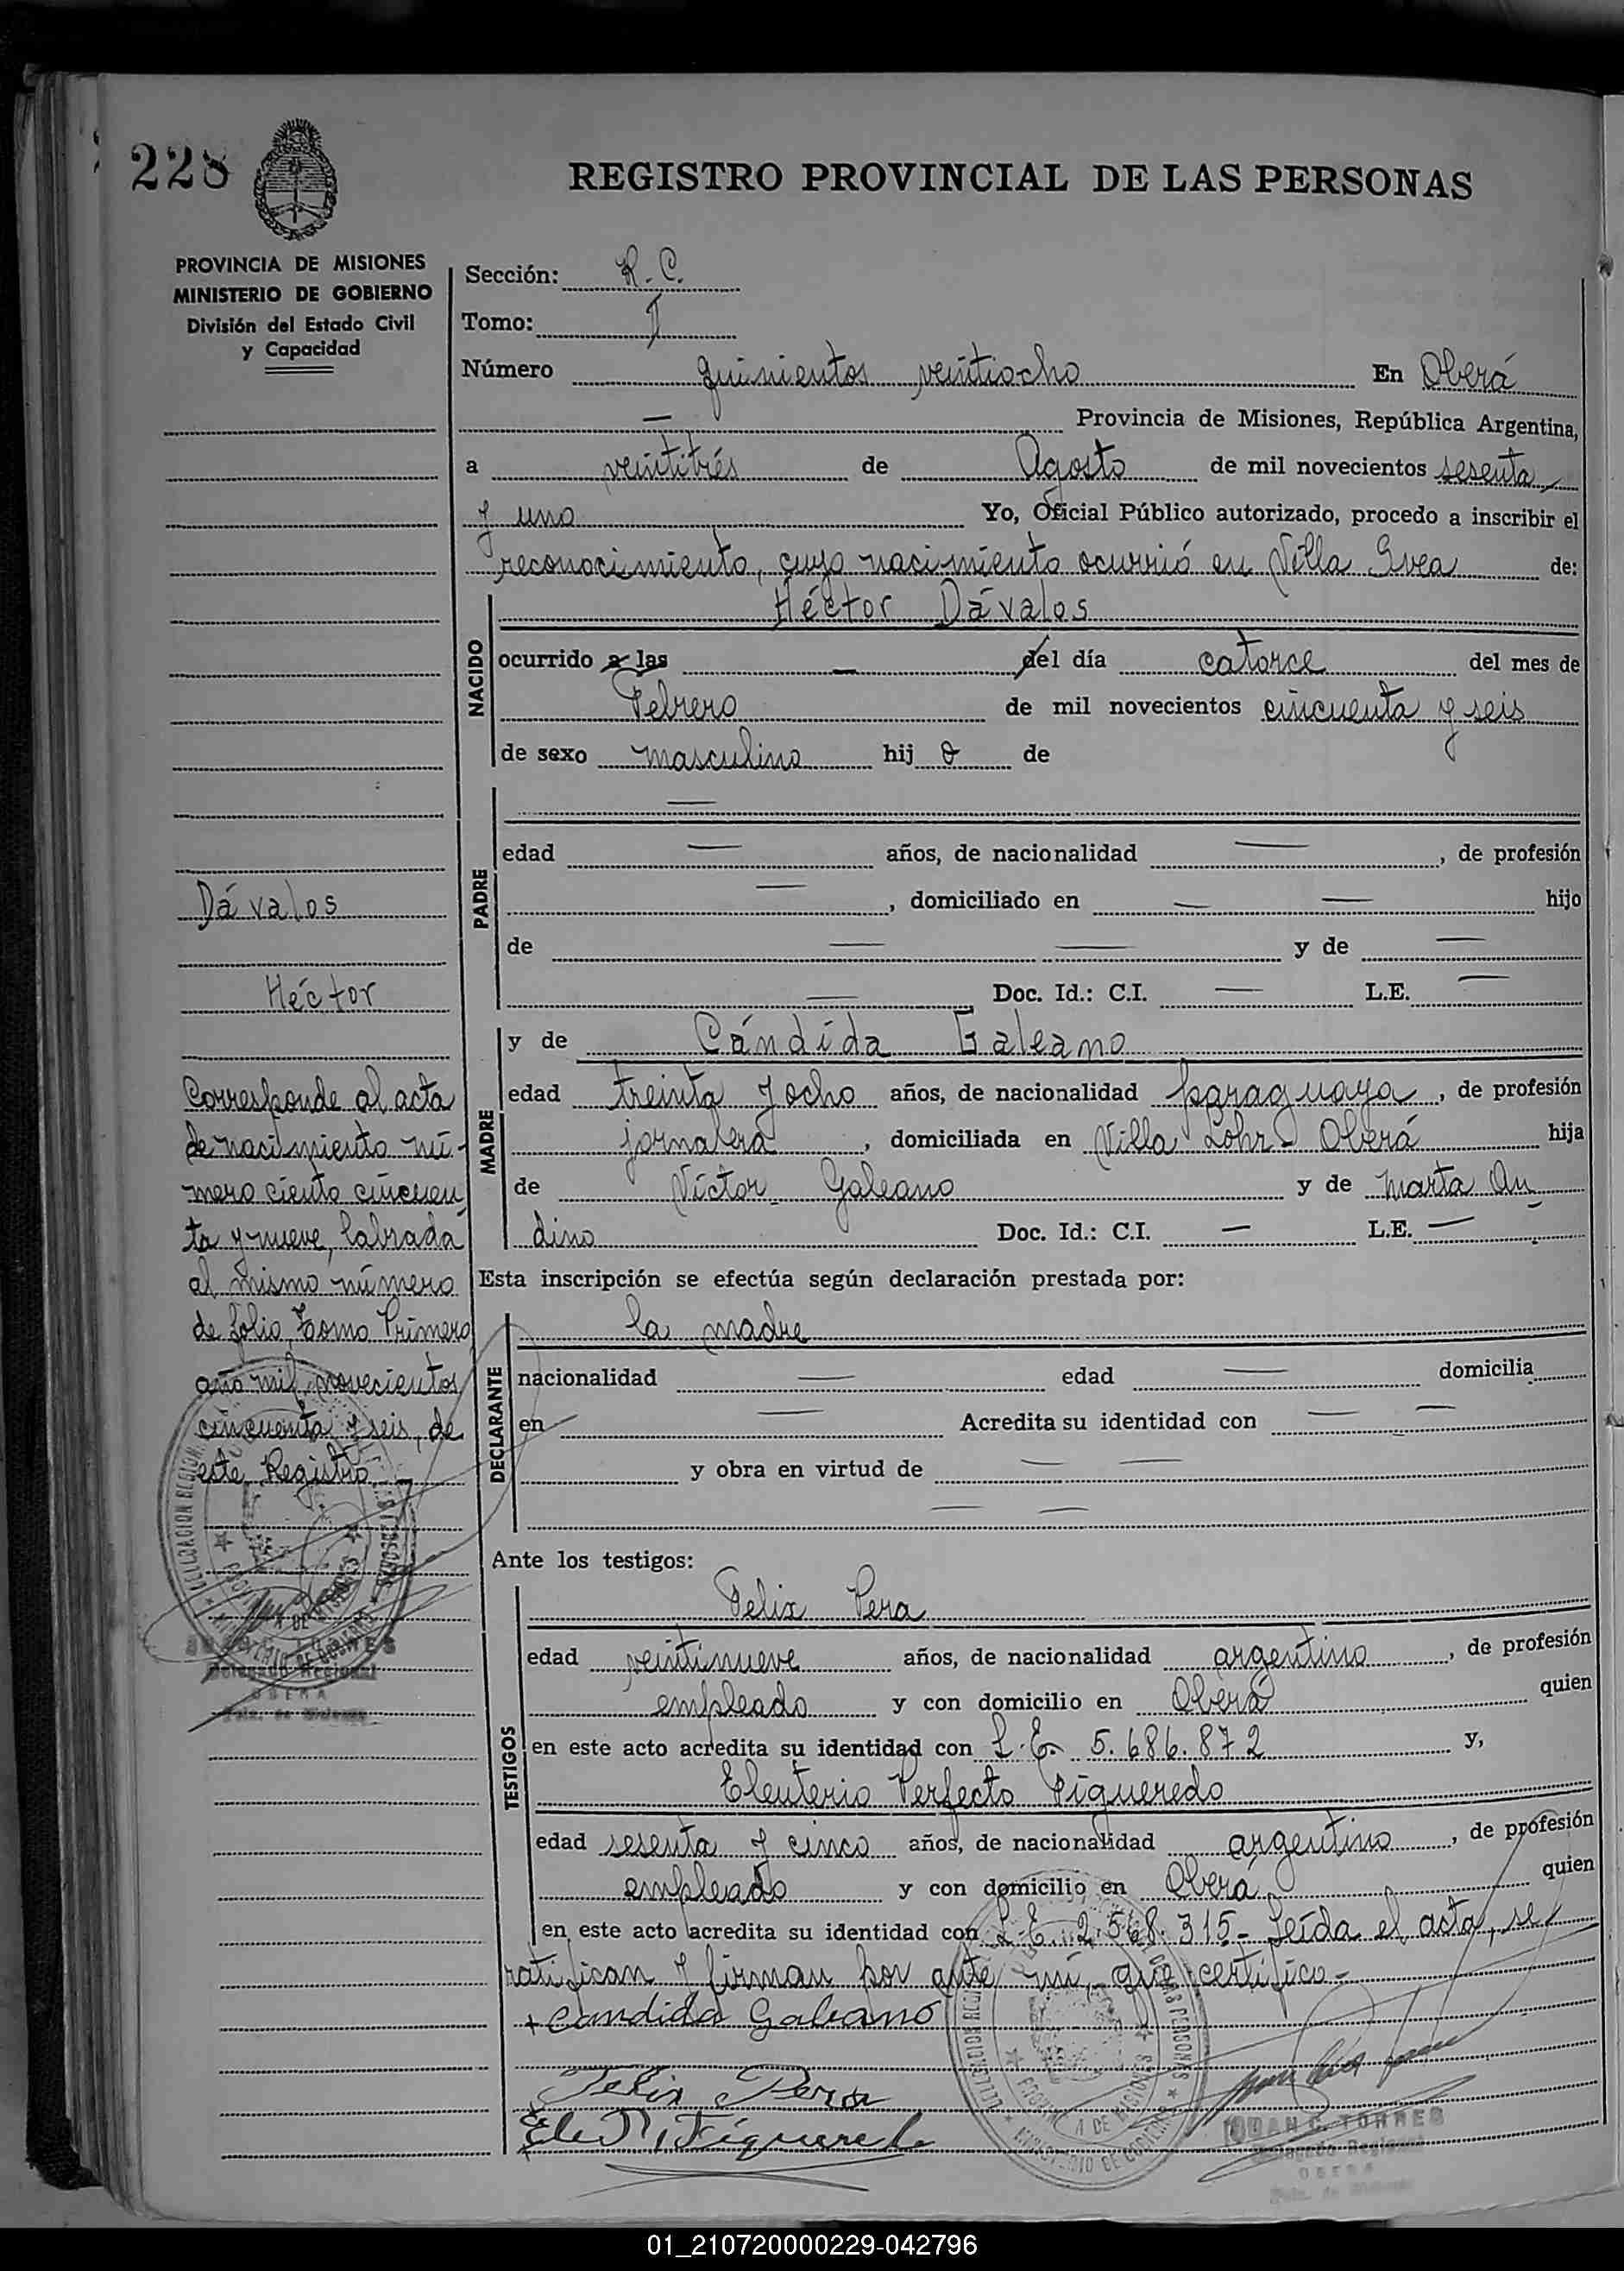 228
REGISTRO PROVINCIAL DE LAS PERSONAS
PROVINCIA DE MISIONES
MINISTERIO DE GOBIERNO
División del Estado Civil
y Capacidad
Sección: R. C.
Tomo: I
Número quinientos veintiocho En Oberá
— Provincia de Misiones, República Argentina,
a veintitrés de Agosto de mil novecientos sesenta
y uno Yo, Oficial Público autorizado, procedo a inscribir el
reconocimiento, cuyo nacimiento ocurrió en Villa Svea de:
NACIDO
Héctor Dávalos
ocurrido a las — del día catorce del mes de
Febrero de mil novecientos cincuenta y seis
de sexo masculino hij o de
PADRE
—
edad — años, de nacionalidad — , de profesión
— , domiciliado en — — hijo
de — — y de —
— Doc. Id.: C.I. — L.E. —
MADRE
y de Cándida Galeano
edad treinta y ocho años, de nacionalidad paraguaya , de profesión
jornalera , domiciliada en Villa Lohr - Oberá hija
de Víctor Galeano y de Marta An
dino Doc. Id.: C.I. — L.E. —
Esta inscripción se efectúa según declaración prestada por:
DECLARANTE
la madre
nacionalidad — edad — domicilia
en — Acredita su identidad con — —
y obra en virtud de — —
— —
Ante los testigos:
TESTIGOS
Felix Pera
edad veintinueve años, de nacionalidad argentino , de profesión
empleado y con domicilio en Oberá quien
en este acto acredita su identidad con L. E. 5.686.872 y,
Eleuterio Perfecto Figueredo
edad sesenta y cinco años, de nacionalidad argentino , de profesión
empleado y con domicilio en Oberá quien
en este acto acredita su identidad con L. E. 2.568.315 - Leída el acta, se
ratifican y firman por ante mí, que certifico -
+ Candida Galeano
Felix Pera
Ele P. Figueredo
JUAN C. TORRES
Delegado Regional
OBERA
Dávalos
Héctor
Corresponde al acta
de nacimiento nú-
mero ciento cincuen
ta y nueve, labrada
al mismo número
de folio, Tomo Primero
año mil novecientos
cincuenta y seis, de
este Registro.
Delegado Regional
OBERA
01_210720000229-042796